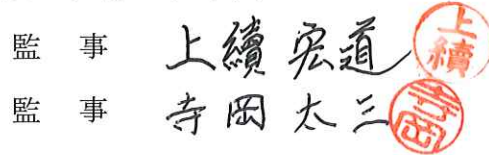 監事 上續宏道 上續
監事 寺岡太三 寺岡